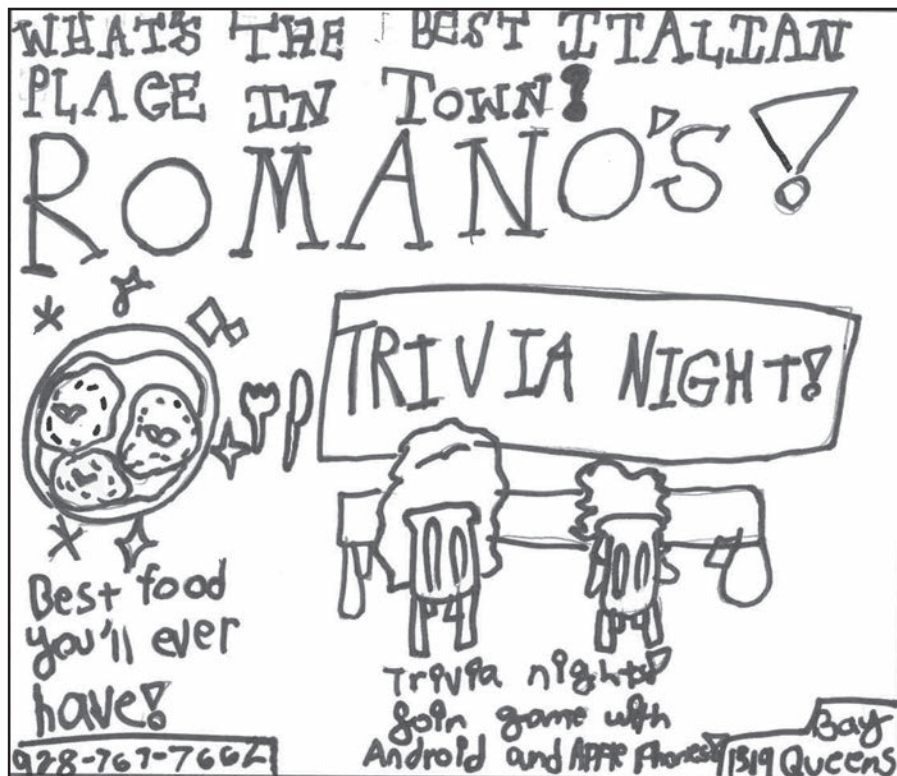 WHAT'S THE BEST ITALIAN
PLACE IN TOWN?
ROMANO'S!
TRIVIA NIGHT!
Best food
you'll ever
have!
Trivia nights!
Join game with
Android and Apple Phones!
Bay
1519 Queens